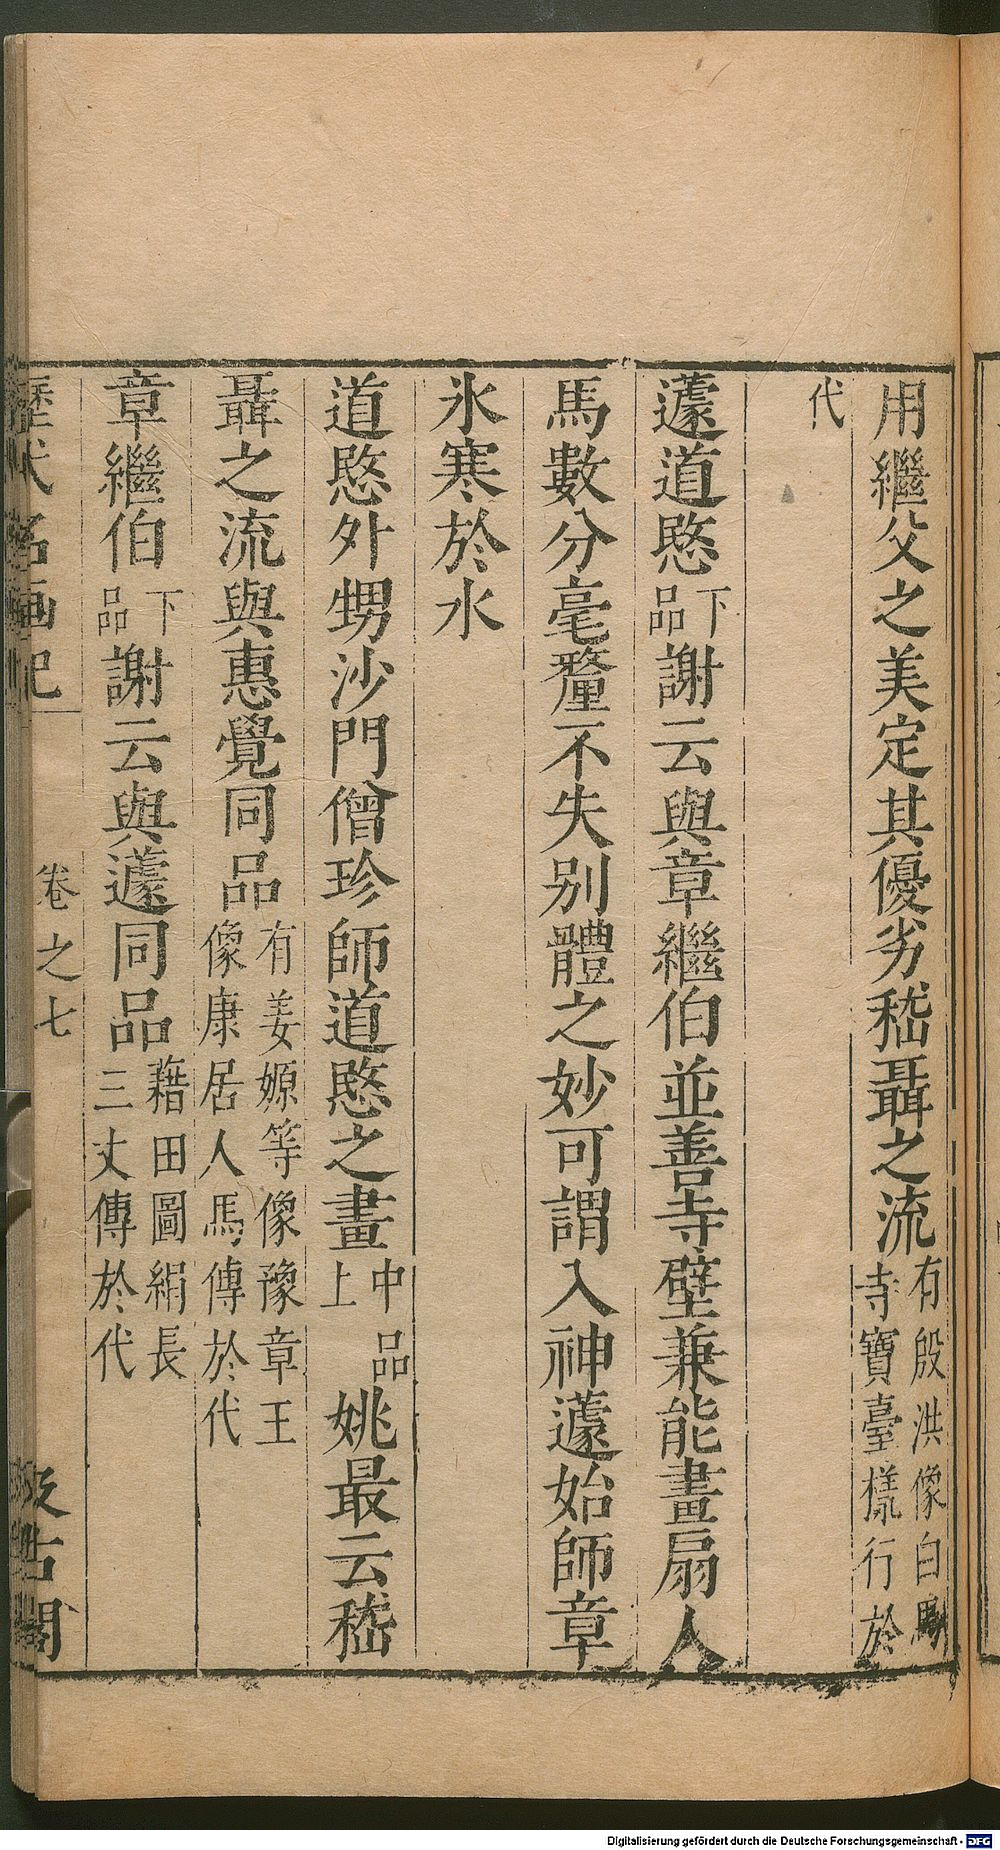 用繼父之美定其優劣嵇聶之流有殷洪像白馬寺寶臺樣行於
代
蘧道愍下品謝云與章繼伯並善寺壁兼能畫扇人
馬數分毫釐不失別體之妙可謂入神蘧始師章
氷寒於水
道愍外甥沙門僧珍師道愍之畫中品上姚最云嵇
聶之流與惠覺同品有姜嫄等像豫章王像康居人馬傳於代
章繼伯下品謝云與蘧同品藉田圖絹長三丈傳於代
歷代名画記 卷之七 汲古閣
Digitalisierung gefördert durch die Deutsche Forschungsgemeinschaft - DFG